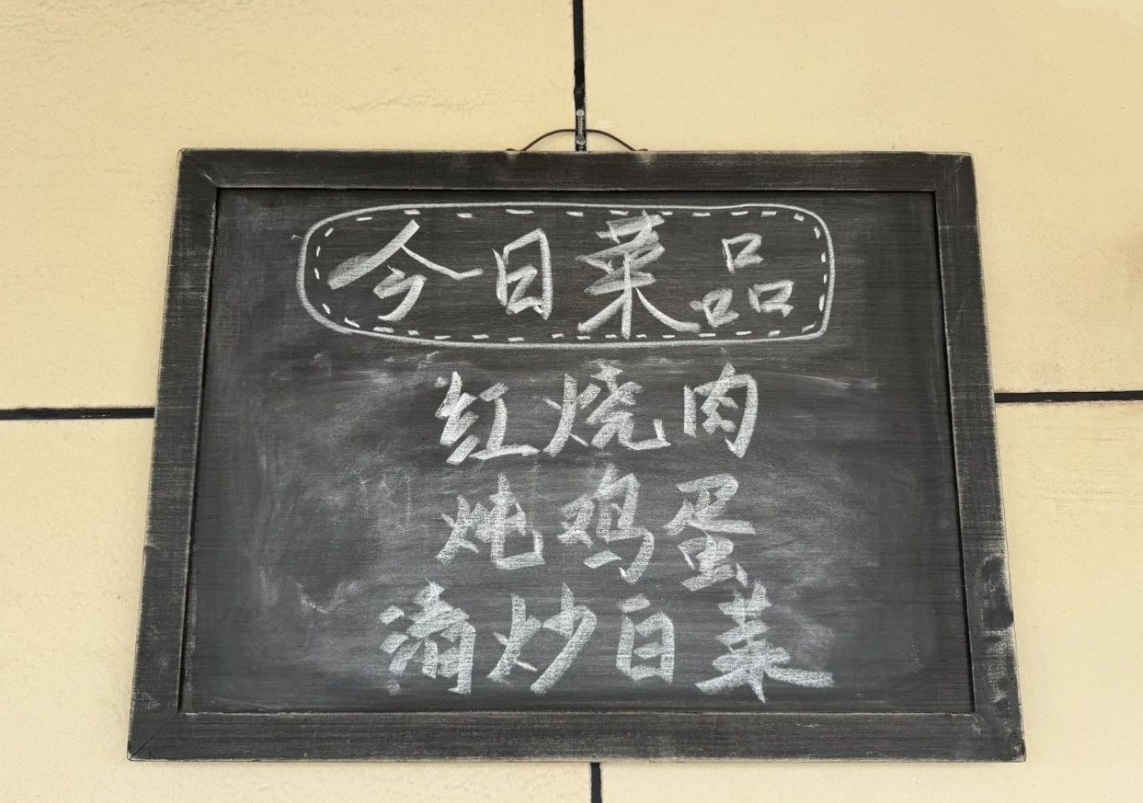 今日菜品
红烧肉
炖鸡蛋
清炒白菜